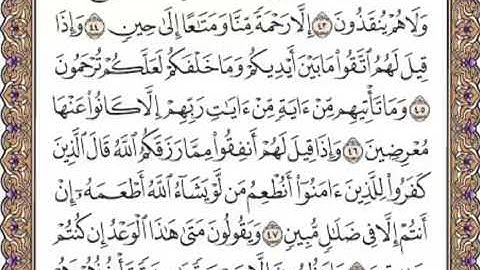 وَلَا هُمْ يُنقَذُونَ ٤٣ إِلَّا رَحْمَةً مِّنَّا وَمَتَٰعًا إِلَىٰ حِينٍ ٤٤ وَإِذَا
قِيلَ لَهُمُ ٱتَّقُوا۟ مَا بَيْنَ أَيْدِيكُمْ وَمَا خَلْفَكُمْ لَعَلَّكُمْ تُرْحَمُونَ
٤٥ وَمَا تَأْتِيهِم مِّنْ ءَايَةٍ مِّنْ ءَايَٰتِ رَبِّهِمْ إِلَّا كَانُوا۟ عَنْهَا
مُعْرِضِينَ ٤٦ وَإِذَا قِيلَ لَهُمْ أَنفِقُوا۟ مِمَّا رَزَقَكُمُ ٱللَّهُ قَالَ ٱلَّذِينَ
كَفَرُوا۟ لِلَّذِينَ ءَامَنُوٓا۟ أَنُطْعِمُ مَن لَّوْ يَشَآءُ ٱللَّهُ أَطْعَمَهُۥٓ إِنْ
أَنتُمْ إِلَّا فِى ضَلَٰلٍ مُّبِينٍ ٤٧ وَيَقُولُونَ مَتَىٰ هَٰذَا ٱلْوَعْدُ إِن كُنتُمْ